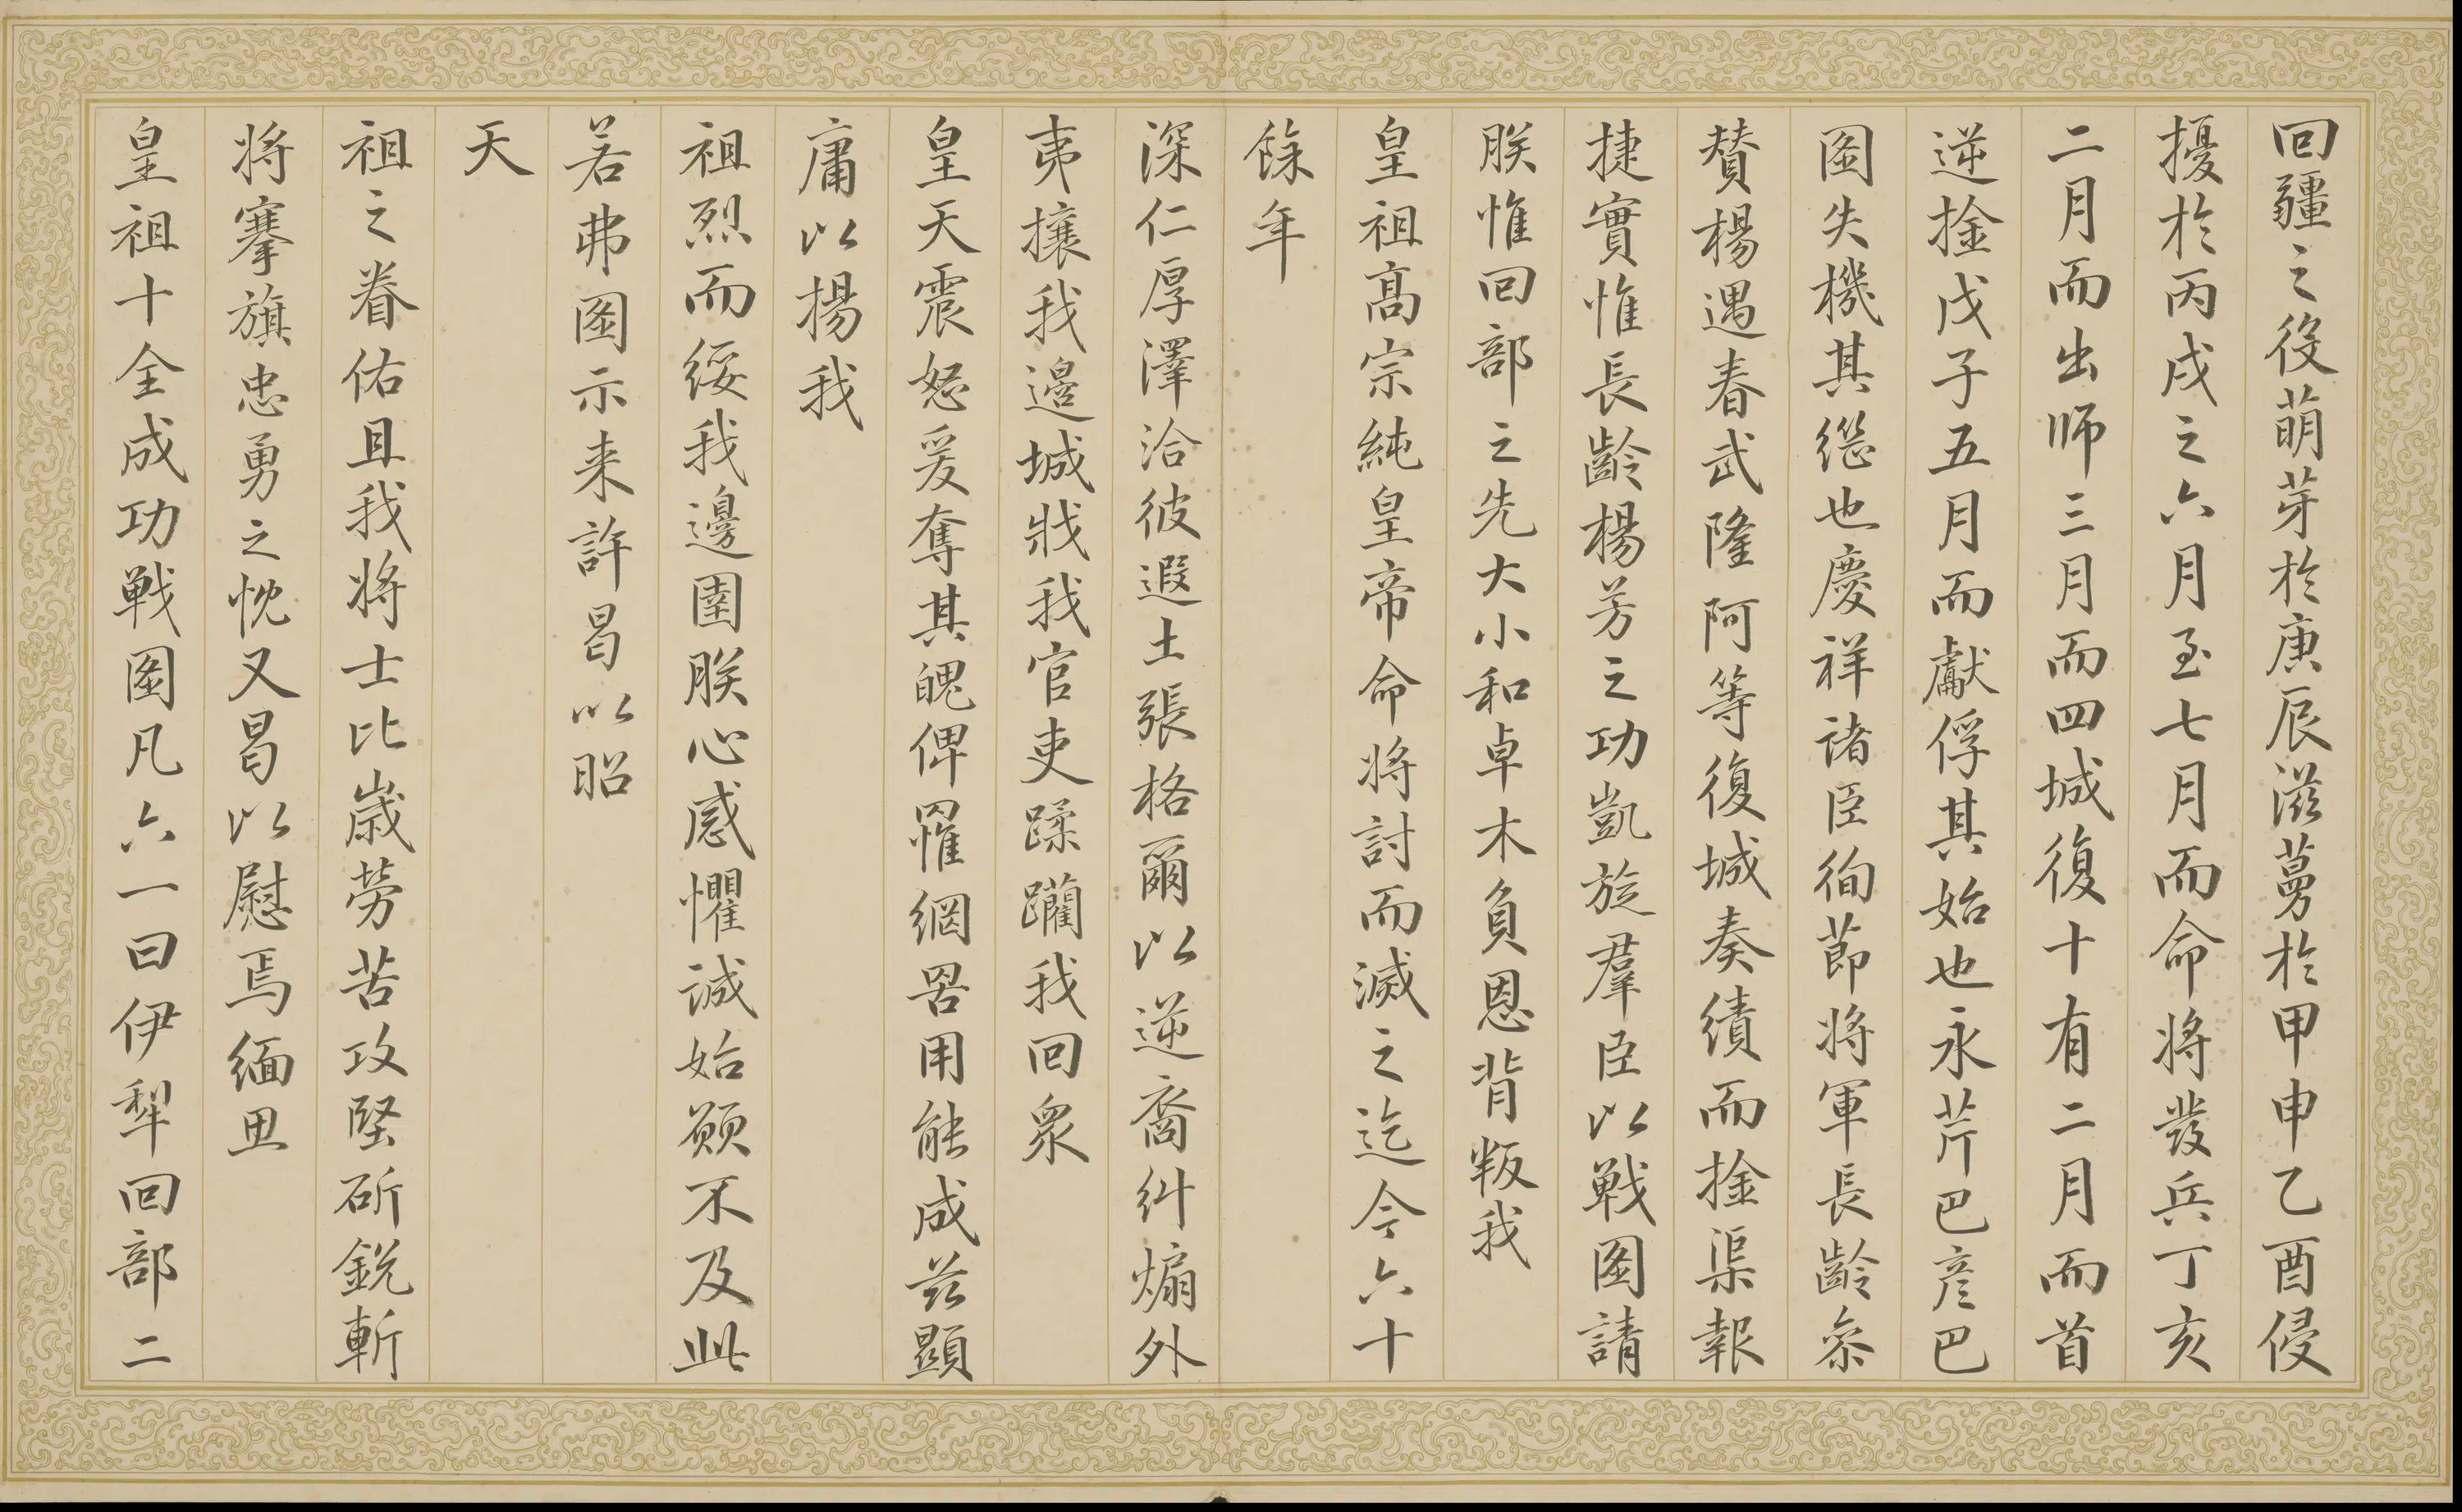 回疆之役萌芽於庚辰滋蔓於甲申乙酉侵
擾於丙戌之六月至七月而命將發兵丁亥
二月而出師三月而四城復十有二月而首
逆捦戊子五月而獻俘其始也永芹巴彥巴
圖失機其繼也慶祥諸臣徇節將軍長齡叅
贊楊遇春武隆阿等復城奏績而捦渠報
捷實惟長齡楊芳之功凱旋羣臣以戰圖請
朕惟回部之先大小和卓木負恩背叛我
皇祖高宗純皇帝命將討而滅之迄今六十
餘年
深仁厚澤洽彼遐土張格爾以逆裔糾煽外
夷攘我邊城戕我官吏蹂躪我回衆
皇天震怒爰奪其魄俾罹網罟用能成茲顯
庸以揚我
祖烈而綏我邊圉朕心感懼誠始願不及此
若弗圖示来許曷以昭
天
祖之眷佑且我將士比歲勞苦攻堅斫銳斬
將搴旗忠勇之忱又曷以慰焉緬思
皇祖十全成功戰圖凡六一曰伊犂回部二